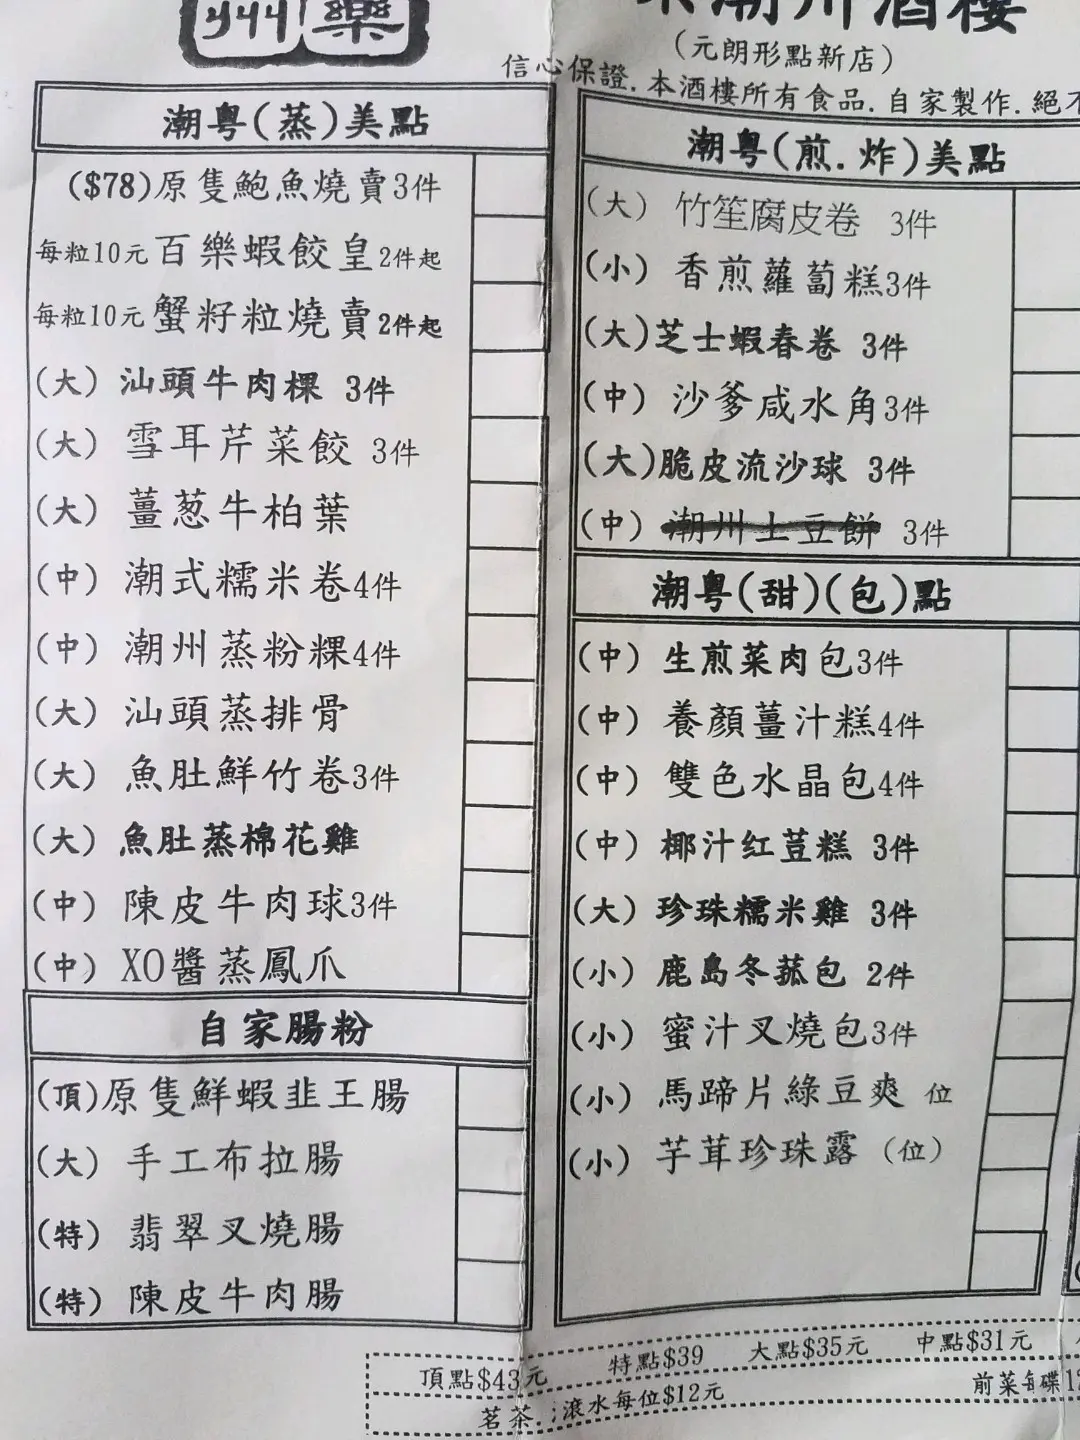 州樂
潮州酒樓
(元朗形點新店)
信心保證.本酒樓所有食品.自家製作.絕不
潮粵(蒸)美點
($78)原隻鮑魚燒賣3件
每粒10元百樂蝦餃皇2件起
每粒10元蟹籽粒燒賣2件起
(大)汕頭牛肉粿 3件
(大)雪耳芹菜餃 3件
(大)薑葱牛柏葉
(中)潮式糯米卷4件
(中)潮州蒸粉粿4件
(大)汕頭蒸排骨
(大)魚肚鮮竹卷3件
(大)魚肚蒸棉花雞
(中)陳皮牛肉球3件
(中)XO醬蒸鳳爪
自家腸粉
(頂)原隻鮮蝦韭王腸
(大)手工布拉腸
(特)翡翠叉燒腸
(特)陳皮牛肉腸
潮粵(煎.炸)美點
(大)竹笙腐皮卷 3件
(小)香煎蘿蔔糕3件
(大)芝士蝦春卷 3件
(中)沙爹咸水角3件
(大)脆皮流沙球 3件
(中)潮州土豆餅 3件
潮粵(甜)(包)點
(中)生煎菜肉包3件
(中)養顏薑汁糕4件
(中)雙色水晶包4件
(中)椰汁红荳糕 3件
(大)珍珠糯米雞 3件
(小)鹿島冬菰包 2件
(小)蜜汁叉燒包3件
(小)馬蹄片綠豆爽 位
(小)芋茸珍珠露 (位)
頂點$43元 特點$39 大點$35元 中點$31元
茗茶.滾水每位$12元 前菜每碟